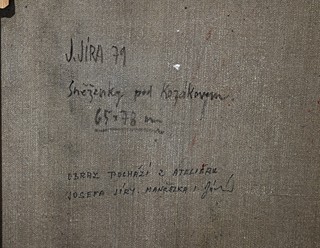 J.JÍRA 79
Sněženky pod Kozákovem.
65×78 cm
OBRAZ POCHÁZÍ Z ATELIÉRU
JOSEFA JÍRY. MANŽELKA